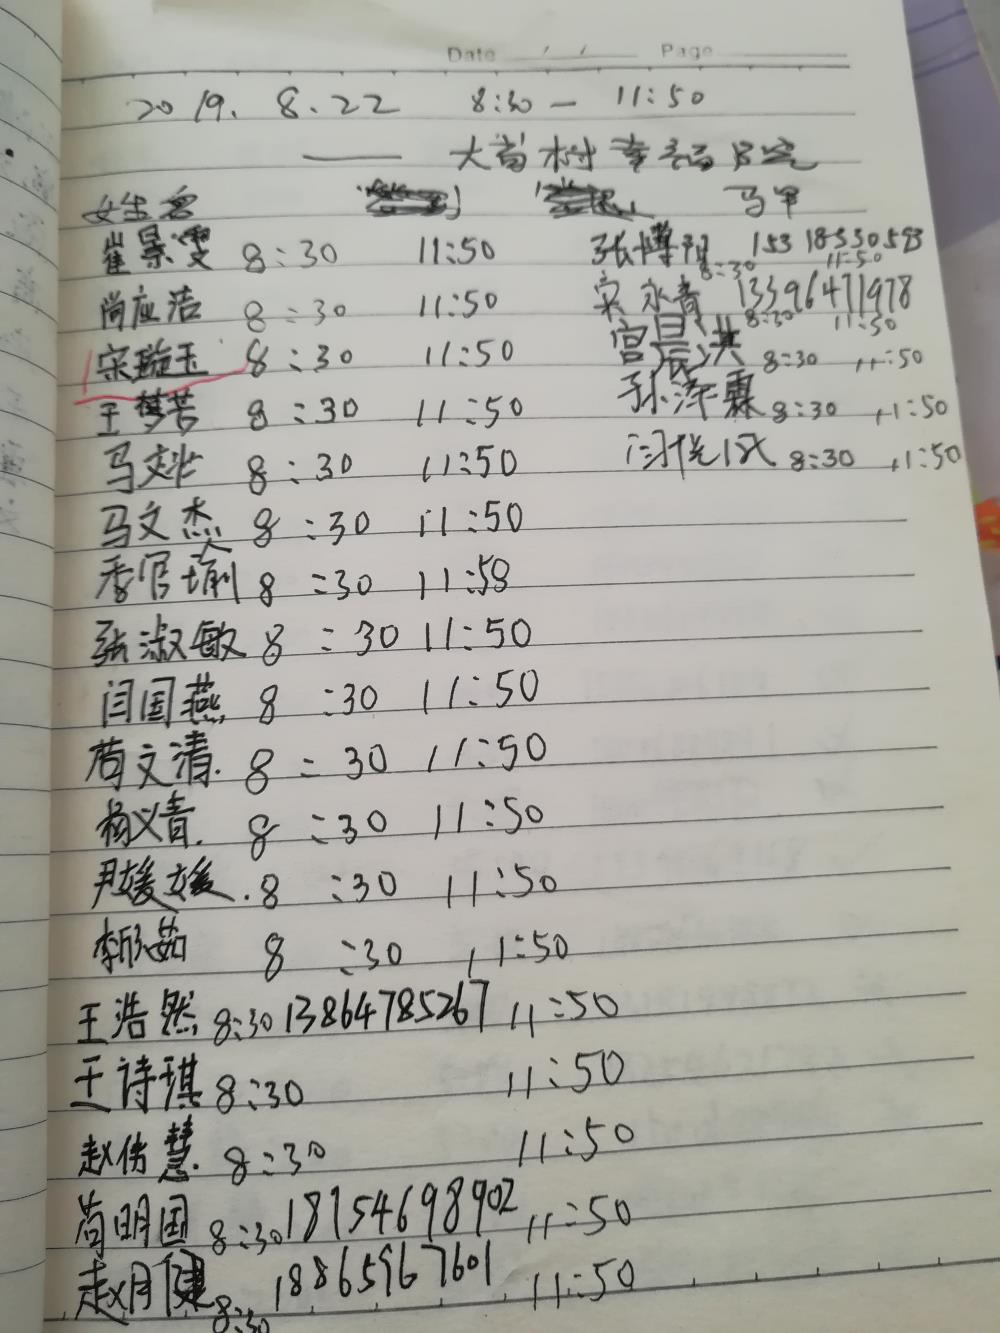 Date / / Page
2019. 8.22 8:30 — 11:50
—— 大苟村幸福食堂
姓名 马甲
崔景雯 8:30 11:50 张博阳 15318530593
8:30 11:50
尚应洁 8:30 11:50 宋永青 13396471978
8:30 11:50
宋璇玉 8:30 11:50 宫晨淇 8:30 11:50
王梦苦 8:30 11:50 孙泽霖 8:30 11:50
马 8:30 11:50 闫悦 8:30 11:50
马文杰 8:30 11:50
季官瑜 8:30 11:58
张淑敏 8:30 11:50
闫国燕 8:30 11:50
苟文清. 8:30 11:50
杨义青. 8:30 11:50
尹媛媛. 8:30 11:50
李欣茹 8:30 11:50
王浩然 8:30 13864785267 11:50
王诗琪 8:30 11:50
赵伟慧. 8:30 11:50
苟明国 8:30 18754698902 11:50
赵月健 8:30 18865967601 11:50